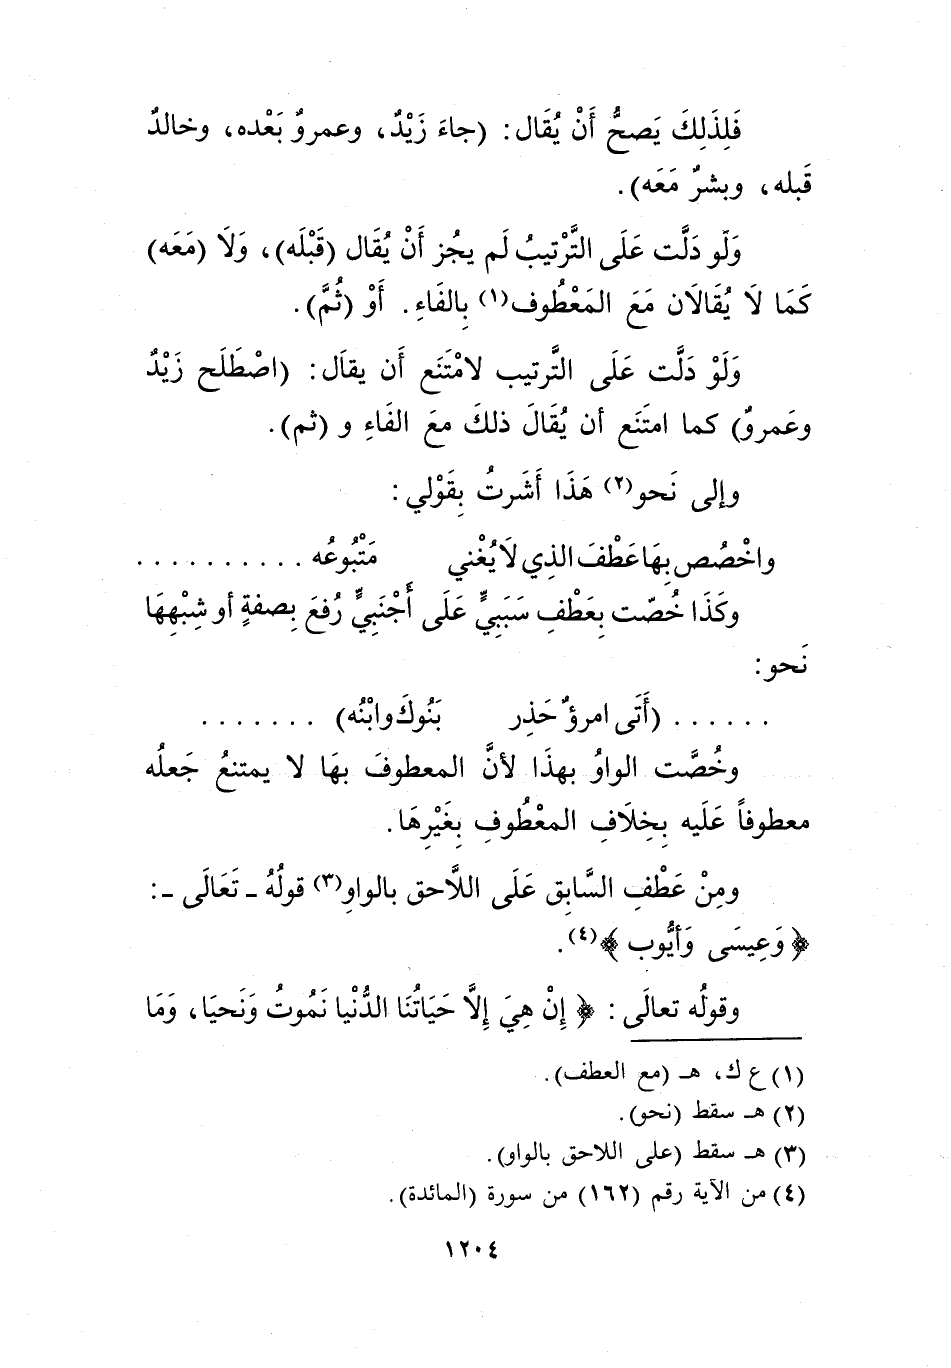 فَلِذَلِكَ يَصحُّ أَنْ يُقَال: (جاءَ زَيْدٌ، وعمروٌ بَعْده، وخالدٌ
قَبله، وبشرٌ مَعَه).
وَلَو دَلَّت عَلَى التَّرْتيبُ لَم يجُز أَنْ يُقَال (قَبْلَه)، وَلَا (مَعَه)
كَمَا لَا يُقَالَان مَعَ المَعْطُوفِ(١) بِالفَاءِ. أَوْ (ثُمَّ).
وَلَوْ دَلَّت عَلَى التَّرتيب لامْتَنَع أَن يقاَل: (اصْطَلَح زَيْدٌ
وعَمروٌ) كما امتَنَع أن يُقَالَ ذلكَ معَ الفَاءِ و (ثم).
وإلى نَحو(٢) هَذَا أَشَرتُ بِقَوْلي:
واخْصُص بِهَا عَطْفَ الذِي لَا يُغْني مَتْبُوعُه ..........
وكَذَا خُصّت بِعَطْفِ سَبَبيٍّ عَلَى أَجْنَبيٍّ رُفعَ بِصفةٍ أو شِبْهِهَا
نَحو:
...... (أَتَى امرؤٌ حَذِر بَنُوكَ وابْنُه) .......
وخُصَّت الواوُ بهذَا لأنَّ المعطوفَ بهَا لا يمتنعُ جَعلُه
معطوفاً عَلَيه بِخِلَافِ المعْطُوفِ بِغَيْرِهَا.
ومِنْ عَطْفِ السَّابِق عَلَى اللاَّحق بالواوِ(٣) قولُهُ ـ تَعَالَى ـ:
﴿وَعِيسَى وَأيُّوب﴾(٤).
وقولُه تعالَى: ﴿إِنْ هِيَ إِلَّا حَيَاتُنَا الدُّنْيا نَمُوتُ وَنَحيَا، وَمَا
(١) ع ك، هـ (مع العطف).
(٢) هـ سقط (نحو).
(٣) هـ سقط (على اللاحق بالواو).
(٤) من الآية رقم (١٦٢) من سورة (المائدة).
١٢٠٤